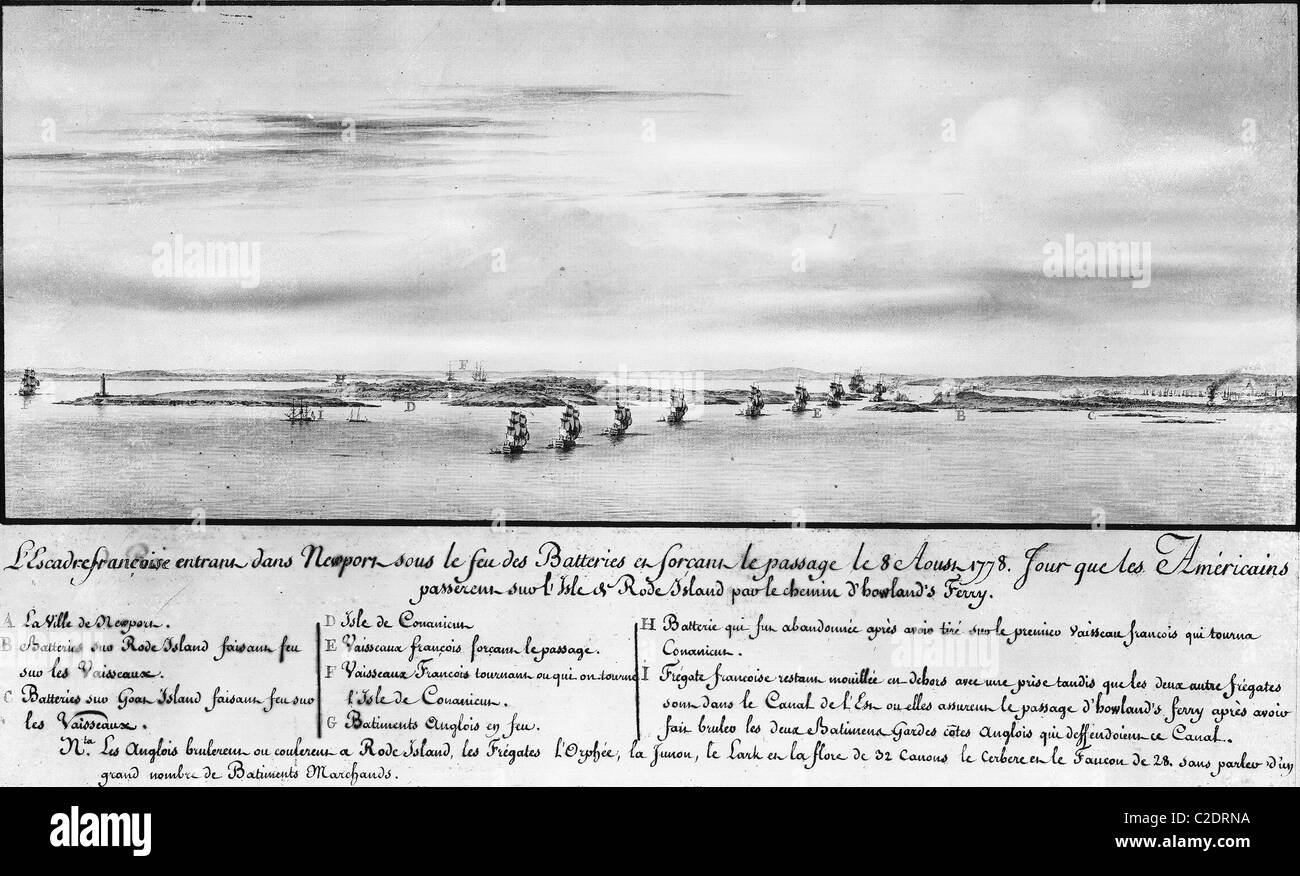 F
I
D
E
B
C
L'Escadre françoise entrant dans Newport sous le feu des Batteries et forçant le passage le 8 Aoust 1778. Jour que les Américains
passerent sur l'Isle de Rode Island par le chemin d'howland's Ferry.
A La Ville de Newport.
B Batteries sur Rode Island faisant feu
sur les Vaisseaux.
C Batteries sur Goat Island faisant feu sur
les Vaisseaux.
D Isle de Conanicut
E Vaisseaux françois forçant le passage.
F Vaisseaux François tournant ou qui on tourné
l'Isle de Conanicut.
G Batiments Anglois en feu.
H Batterie qui fut abandonnée après avoir tiré sur le premier vaisseau francois qui tourna
Conanicut.
I Frégate francoise restant mouillée en dehors avec une prise tandis que les deux autre frégates
sont dans le Canal de l'Est ou elles assurent le passage d'howland's ferry après avoir
fait bruler les deux Batimens Gardes côtes Anglois qui deffendoient ce Canal.
Nta. Les Anglois brulerent ou coulerent a Rode Island, les Frégates l'Orphée, la Junon, le Lark et la flore de 32 Canons le Cerbere et le Faucon de 28. sans parler d'un
grand nombre de Batiments Marchands.
alamy
alamy
alamy
alamy
alamy
alamy
Image ID: C2DRNA
www.alamy.com